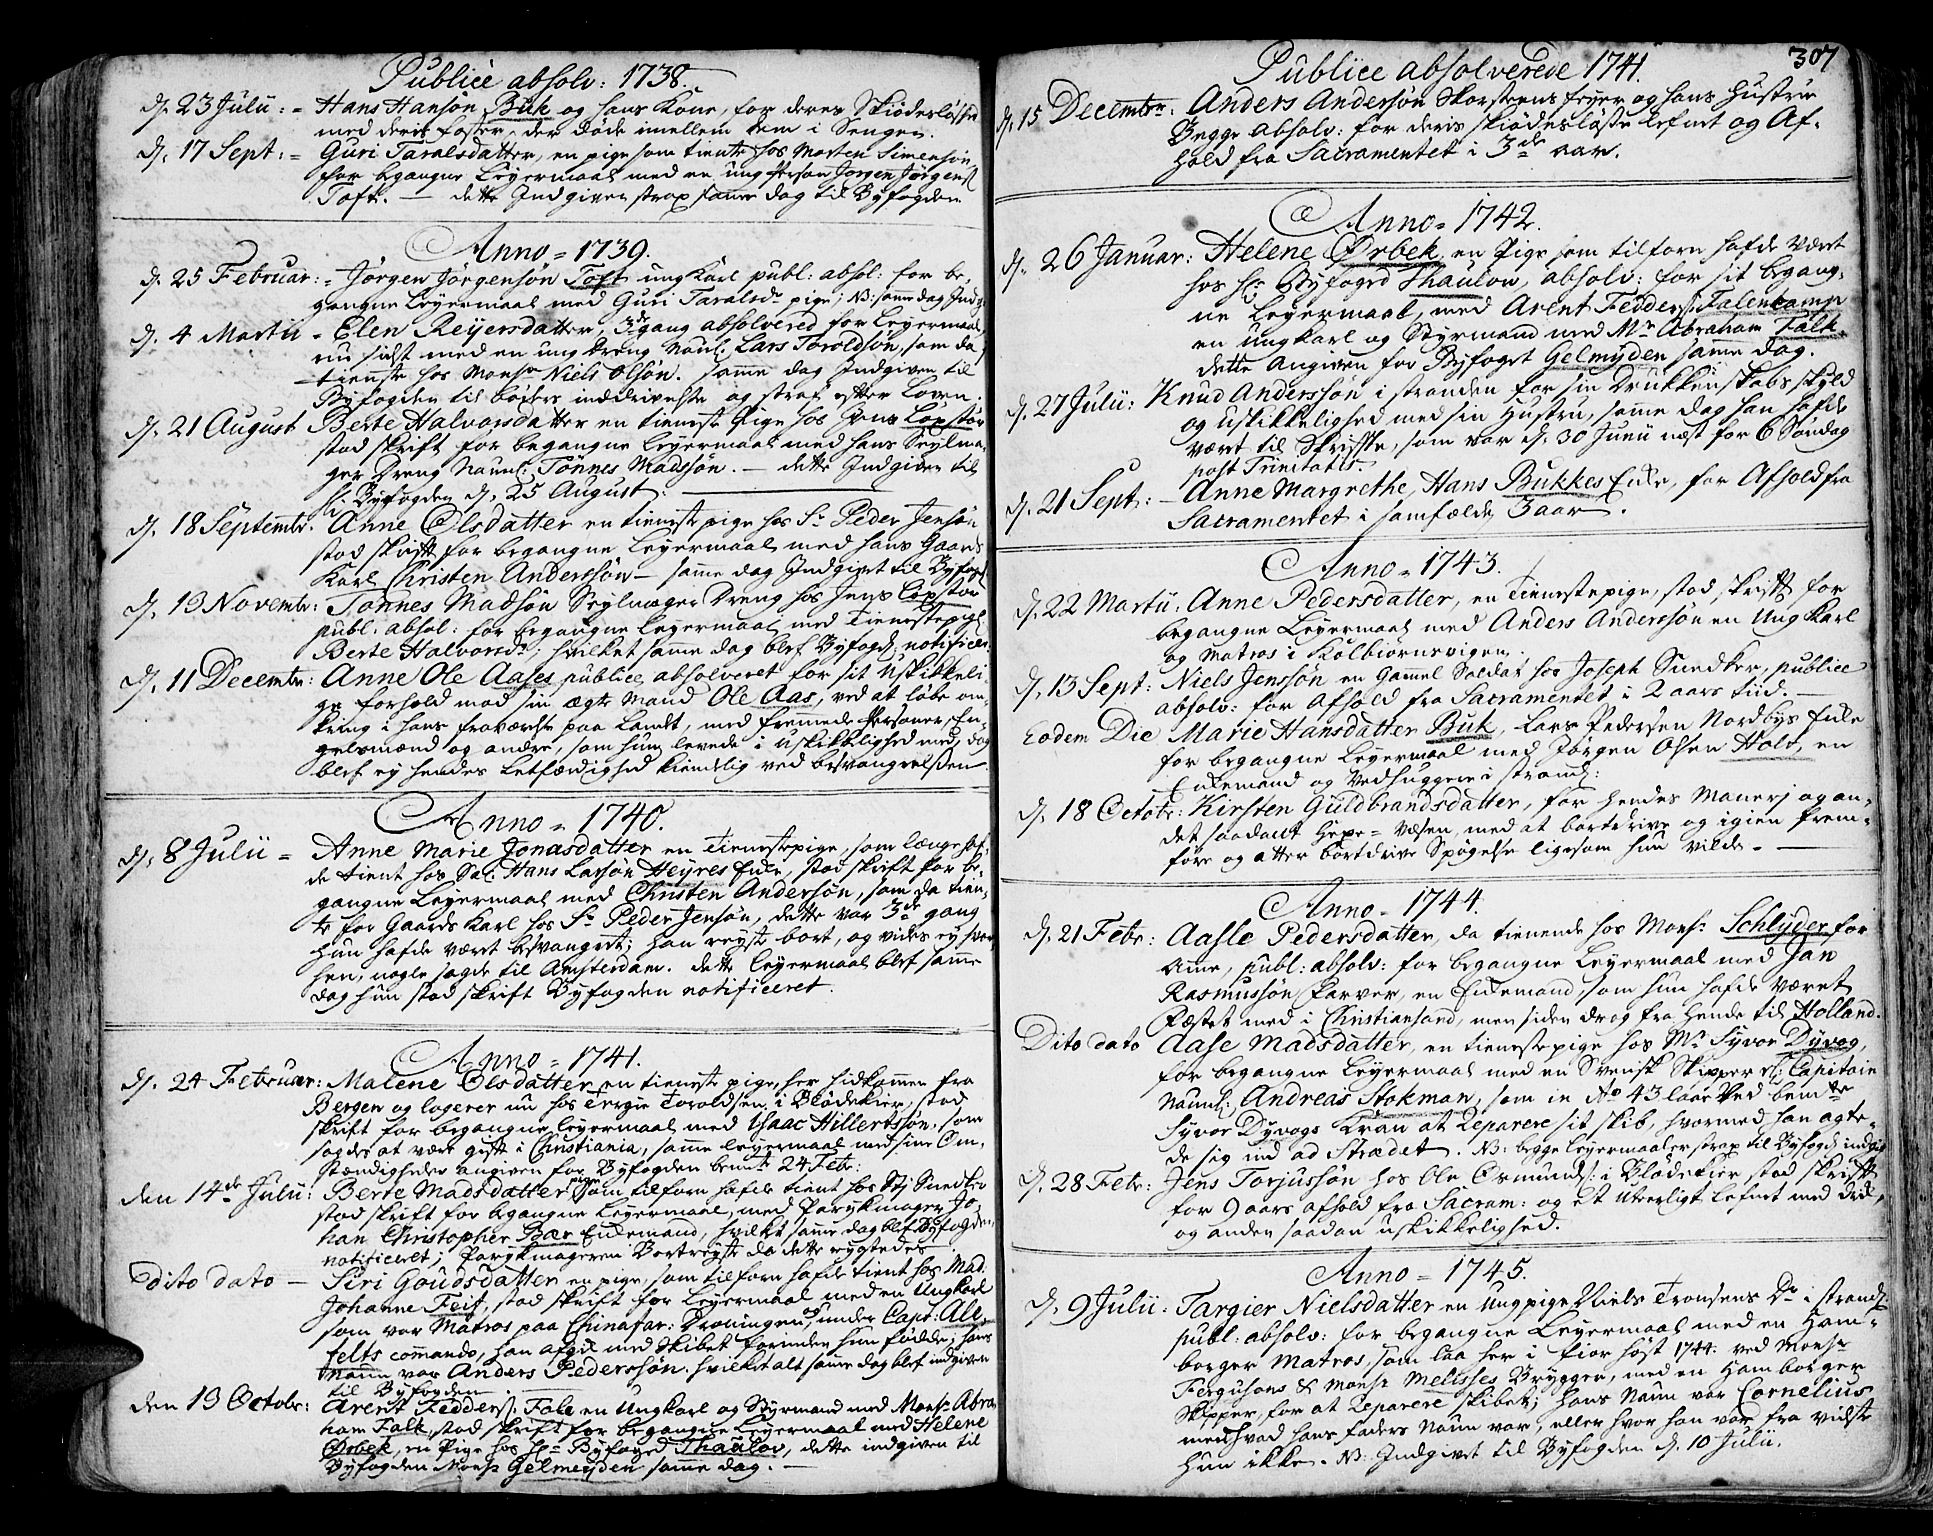 Publice absolv: 1738.
d. 23 Julii: = Hans Hansøn Buk og hans Kone, for deres Skiødesløshed
med deris foster, der døde imellem dem i Sengen.
d. 17 Sept: = Guri Taralsdatter, en pige som tiente hos Morten Simensøn
for begangne Leyermaal med en ung person Jørgen Jørgens:
Toft. — dette Indgiven strax samme dag til Byfogden
Anno = 1739.
d. 25 Februar: = Jørgen Jørgensøn Toft ung Karl publ: absol: for be-
gangne Leyermaal med Guri Taralsdr pige; NB: samme dag Indg:
d. 4 Martii = Elen Reyersdatter, 3de gang absolvered for Leyermaal,
nu sidst med en ung dreng Naunl. Lars Toroldsøn, som da
tiente hos Monsr Niels Olsøn. samme dag Indgiven til
Byfogden til bøders inddrivelse og straf efter Loven.
d. 21 August Berte Halvorsdatter en tieneste Pige hos Jens Copstor
stod skrift for begangne Leyermaal med hans Seylma-
ger Dreng Naunl: Tønnes Madssøn. — dette Indgiven til
hr Byfogden d. 25 August.
d. 18 Septembr. Anne Olsdatter en tieneste pige hos Sr Peder Jensøn
stod skrift for begangne Leyermaal med hans Gaards
Karl Christen Anderssøn — samme dag Indgivet til Byfogd
d. 13 Novembr: Tønnes Madsøn Seylmager Dreng hos Jens Copstor
publ. absol: for begangne Leyermaal med Tienestepige
Berte Halvorsdr; hvilket samme dag blef Byfogd: notificeret
d. 11 Decembr: Anne Ole Aases publice absolveret for sit Uskikkeli-
ge forhold mod sin ægte Mand Ole Aas, ved at løbe om-
kring i hans fraværelse paa Landt, med fremmede Personer, En-
gelsmænd og andre, som hun levede i uskikkelighed med, dog
blef ey hendes Letfærdighed kiendelig ved besvangrelsen
Anno = 1740.
d. 8 Julii = Anne Marie Jonasdatter en Tienestepige, som længe haf-
de tient hos Sal: Hans Larsøn Heyres Enke, stod skrift for be-
gangne Leyermaal med Christen Andersøn, som da tien-
te for Gaards Karl hos Sr Peder Jensøn, dette var 3de gang
hun hafde været besvangret; han reyste bort, og vides ey hvor
hen, nogle sagde til Amsterdam. dette leyermaal blef samme
dag hun stod skrift Byfogden notificeret.
Anno = 1741.
d. 24 Februar: Malene Olsdatter en tieneste pige, her hidkommen fra
Bergen og logerer nu hos Tergie Toroldsen i Blødekier, stod
skrift for begangne leyermaal med Isaac Hillertssøn, som
sagdes at være gift i Christiania, samme leyermaal med sine Om-
stændigheder angiven for Byfogden bemte 24 Febr:
den 14de Julii: Berte Madsdatter pige som tilforn hafde tient hos Stj Snedker
stod skrift for begangne Leyermaal, med Parykmager Jo-
han Christopher Bær Enkemand, hvilket samme dag blef Byfogden
notificeret; Parykmageren Bortreyste da dette rygtedes.
Dito dato — Siri Goudsdatter en pige, som tilforn hafde tient hos Mad.
Johanne Feif, stod skrift for Leyermaal med en Ungkarl
som var Matros paa Chinafar: Droningen, under Capt: Ale-
felts commando, han afgik med Skibet forinden hun fødde; hans
Naun var Anders Pederssøn. hvilket alt samme dag blef indgiven
til Byfogden
den 13 Octobr: Arent Feddersl: Falc en Ungkarl og Styrmand med Monsr Abra-
ham Falk, stod skrift for begangne Leyermaal med Helene
Ørbek, en Pige hos hr Byfoged Thaulov, dette indgiven til
Byfogden Monsr Gelmeyden samme dag. —
307
Publice absolverede 1741.
d. 15 Decembr. Anders Andersøn Skorsteensfeyer og hans Hustrue
Begge absolv: for deris skiødesløse lefnet og Af-
hold fra Sacramentet i 3de aar.
Anno = 1742.
d. 26 Januar: Helene Ørbek, en Pige som tilforn hafde været
hos hr Byfoged Thaulow, absolv: for sit begang-
ne Leyermaal, med Arent Fedders: Talenkamp
en ungkarl og Styrmand med Mr Abraham Falk.
dette Angiven for Byfoget Gelmÿden samme dag.
d. 27 Julii: Knud Anderssøn i stranden for sin Drukkenskabs skyld
og uskikkelighed med sin Hustru, samme dag han hafde
været til Skrifte, som var d. 30 Junii næst for 6 Søndag
post Trinitatis.
d. 21 Sept: — Anne Margrethe, Hans Bukkes Enke, for Afhold fra
Sacramentet i samfælde 3 aar.
Anno = 1743.
d. 22 Martii. Anne Pedersdatter, en Tienestepige, stod skrift for
begangne Leyermaal med Anders Anderssøn en Ung Karl
og Matros i Kolbiørnsvigen.
d. 13 Sept: Niels Jenssøn en Gammel Soldat hos Joseph Snedker, publice
absolv: for Afhold fra Sacramentet i 2 aars tiid. —
Eodem Die Marie Hansdatter Buk, Lars Pedersen Nordbÿs Enke
for begangne Leyermaal med Jørgen Olsen Holt, en
Enkemand og Vedhuggere i strand:
d. 18 Octobr: Kirsten Guldbrandsdatter, for hendes Manerj og an-
det saadant Hexe-Væsen, med at bortdrive og igien frem-
føre og atter bortdrive Spøgelse ligesom hun vilde. —
Anno = 1744.
d. 21 Febr: Aasle Pedersdatter, da tienende hos Monsr. Schlyder for
Amme, publ: absolv: for begangne Leyermaal med Jan
Rasmussøn Farver, en Enkemand, som hun hafde været
Fæstet med i Christiansand, men siden drog fra hende til Holland.
Dito dato Aase Madsdatter, en tienestepige hos Mr Syvor Dyvog,
for begangne Leyermaal med en Svensk Skipper el: Capitain
Naunl: Andreas Stokman, som in Ao 43 laae ved bemte
Syvor Dyvogs Kran at Reparere sit skib, hvormed han agte-
de sig ind ad Strædet. NB: begge Leyermaalene strax til Byfogd: indgivet
d. 28 Febr: Jens Torjussøn hos Ole Ormunds: i Blødekier, stod skrift
for 9 aars afhold fra Sacram: og et Utoerligt Lefnet med drik,
og anden saadan uskikkelighed.
Anno = 1745.
d. 9 Julii: Targier Nielsdatter en ung pige Niels Tronsens Dr i strand:
publ: absolv: for begangne Leyermaal med en Ham-
borger Matros, som laa her i fior høst 1744 ved Monsr
Fergusons & Monsr Melisses Brygger, med en Hamborger
Skipper, for at Reparere skibet; hans Naun var Cornelius
men hvad hans faders Naun var, eller hvor han var fra vidste
hun ikke. NB: Indgivet til Byfogden d. 10 Julii.